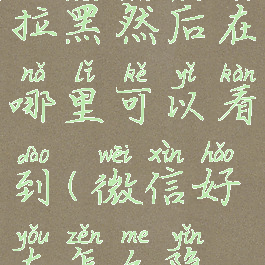 拉黑然后在
nǎ lǐ kě yǐ kàn
哪里可以看
dào wēi xìn hǎo
到(微信好
yǒu zěn me yǐn
友怎么隐